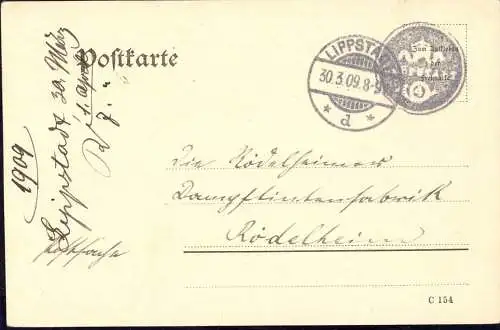 Postkarte
LIPPSTADT
30.3.09.8-9
* d *
Zum Aufkleben
der
Freimarke
1909
Lippstadt 30. März
1. April
Postsache
Die Rödelheimer
Dampftintenfabrik
Rödelheim
C 154